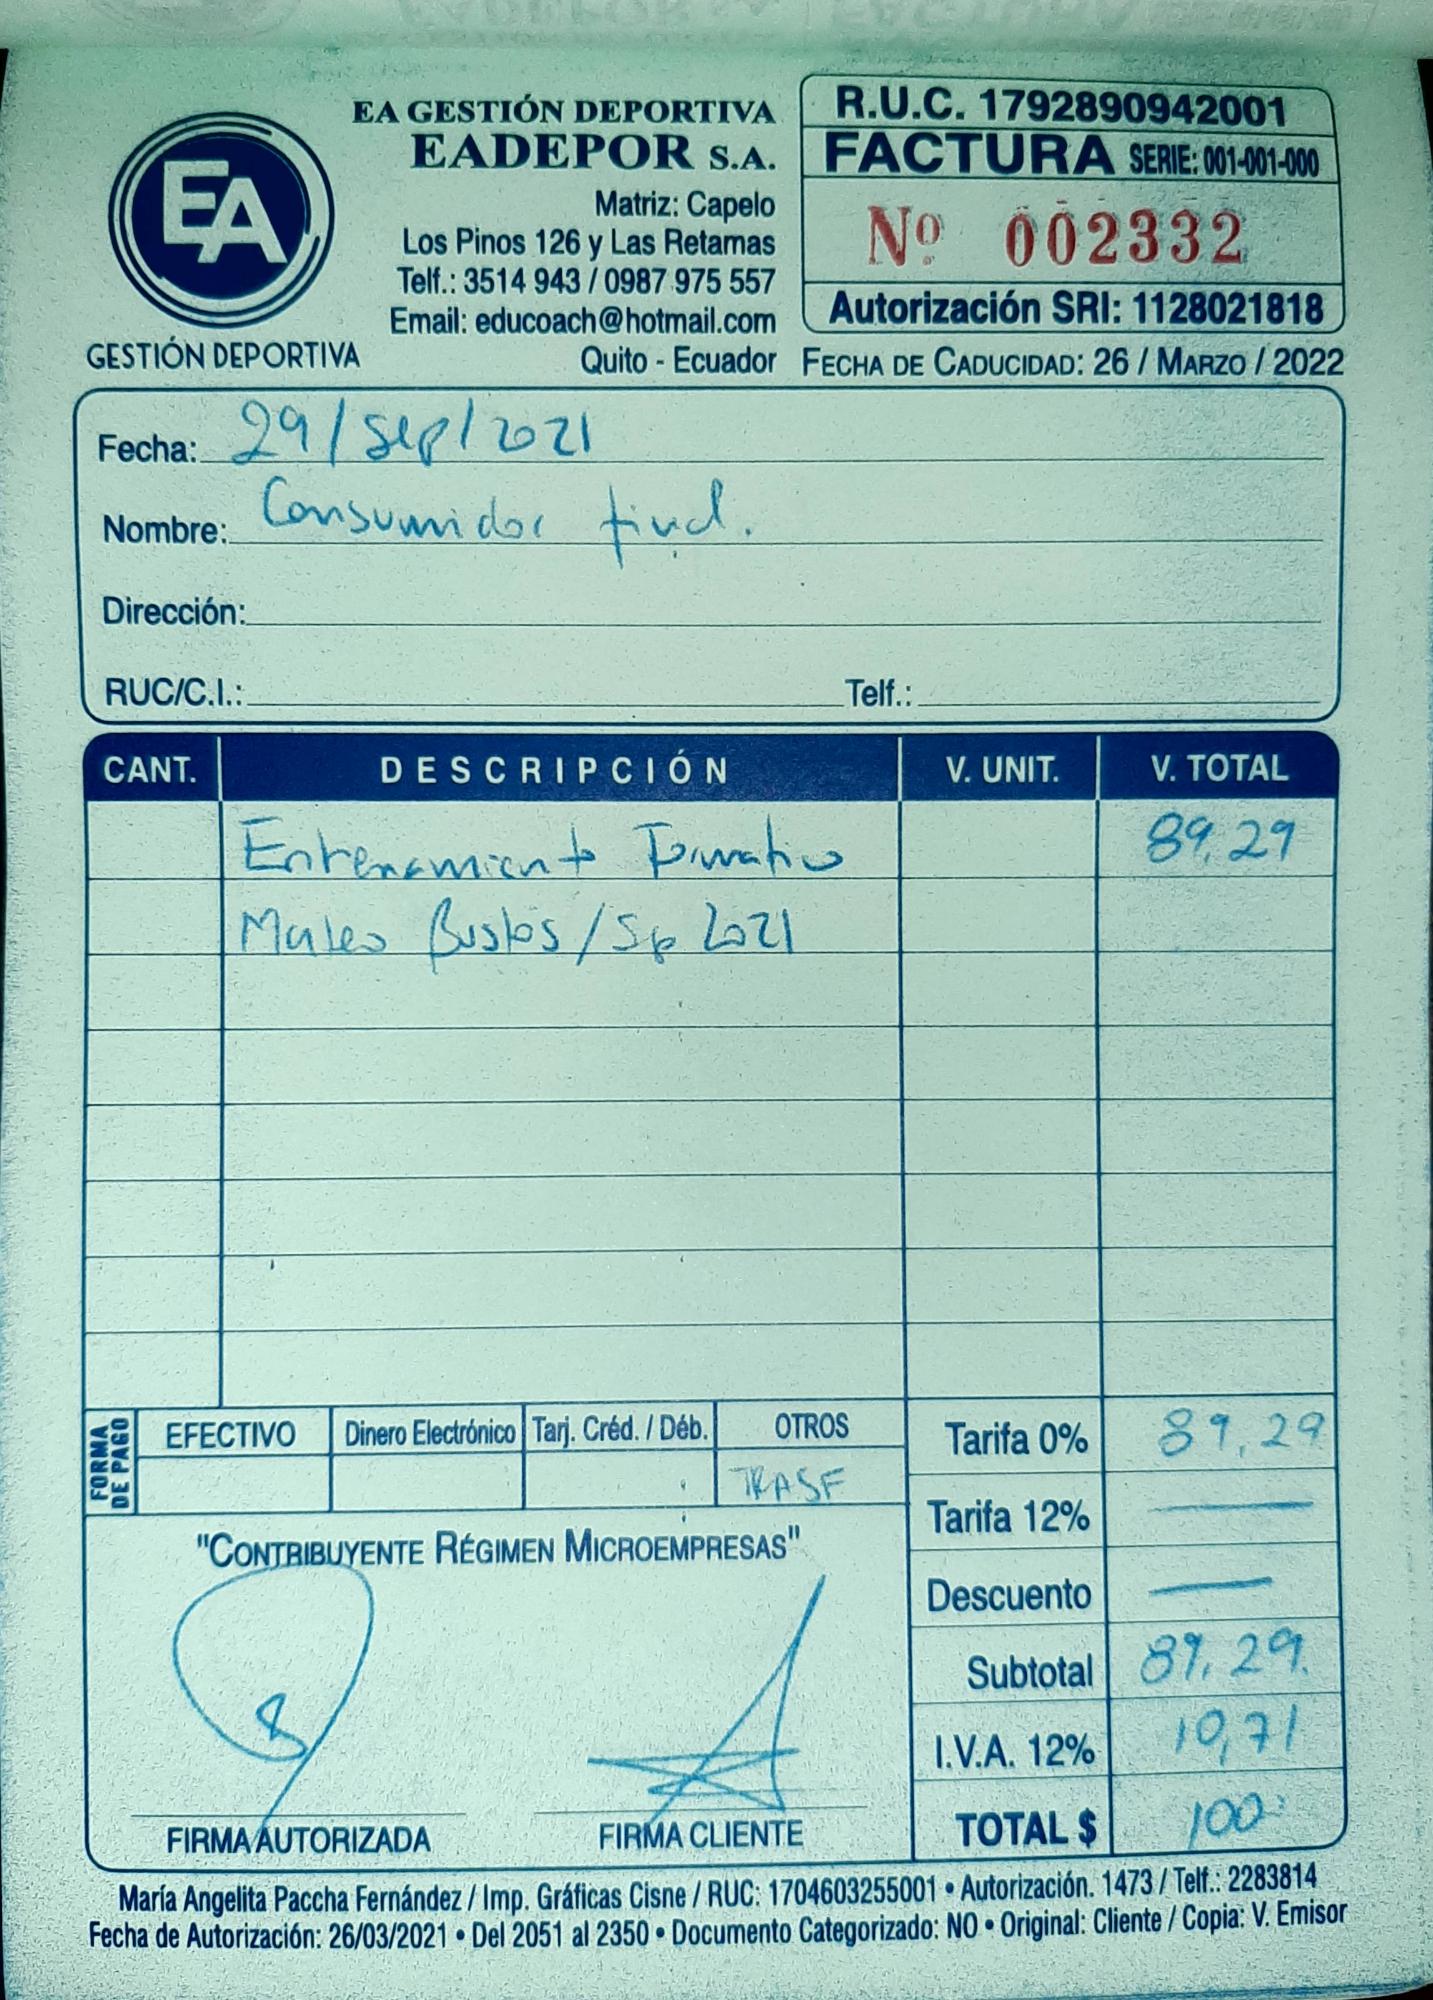 EA GESTIÓN DEPORTIVA
EADEPOR S.A.
Matriz: Capelo
Los Pinos 126 y Las Retamas
Telf.: 3514 943 / 0987 975 557
Email: educoach@hotmail.com
Quito - Ecuador
EA
GESTIÓN DEPORTIVA
R.U.C. 1792890942001
FACTURA SERIE: 001-001-000
Nº 002332
Autorización SRI: 1128021818
FECHA DE CADUCIDAD: 26 / MARZO / 2022
Fecha: 29/Sep/2021
Nombre: Consumidor final.
Dirección:
RUC/C.I.: Telf.:
CANT. DESCRIPCIÓN V. UNIT. V. TOTAL
Entrenamiento Formativo 89,29
Mateo Bustos/Sep 2021
FORMA DE PAGO
EFECTIVO Dinero Electrónico Tarj. Créd. / Déb. OTROS
TRASF
Tarifa 0% 89,29
Tarifa 12% —
Descuento —
Subtotal 89,29.
I.V.A. 12% 10,71
TOTAL $ 100
"CONTRIBUYENTE RÉGIMEN MICROEMPRESAS"
FIRMA AUTORIZADA FIRMA CLIENTE
María Angelita Paccha Fernández / Imp. Gráficas Cisne / RUC: 1704603255001 • Autorización. 1473 / Telf.: 2283814
Fecha de Autorización: 26/03/2021 • Del 2051 al 2350 • Documento Categorizado: NO • Original: Cliente / Copia: V. Emisor